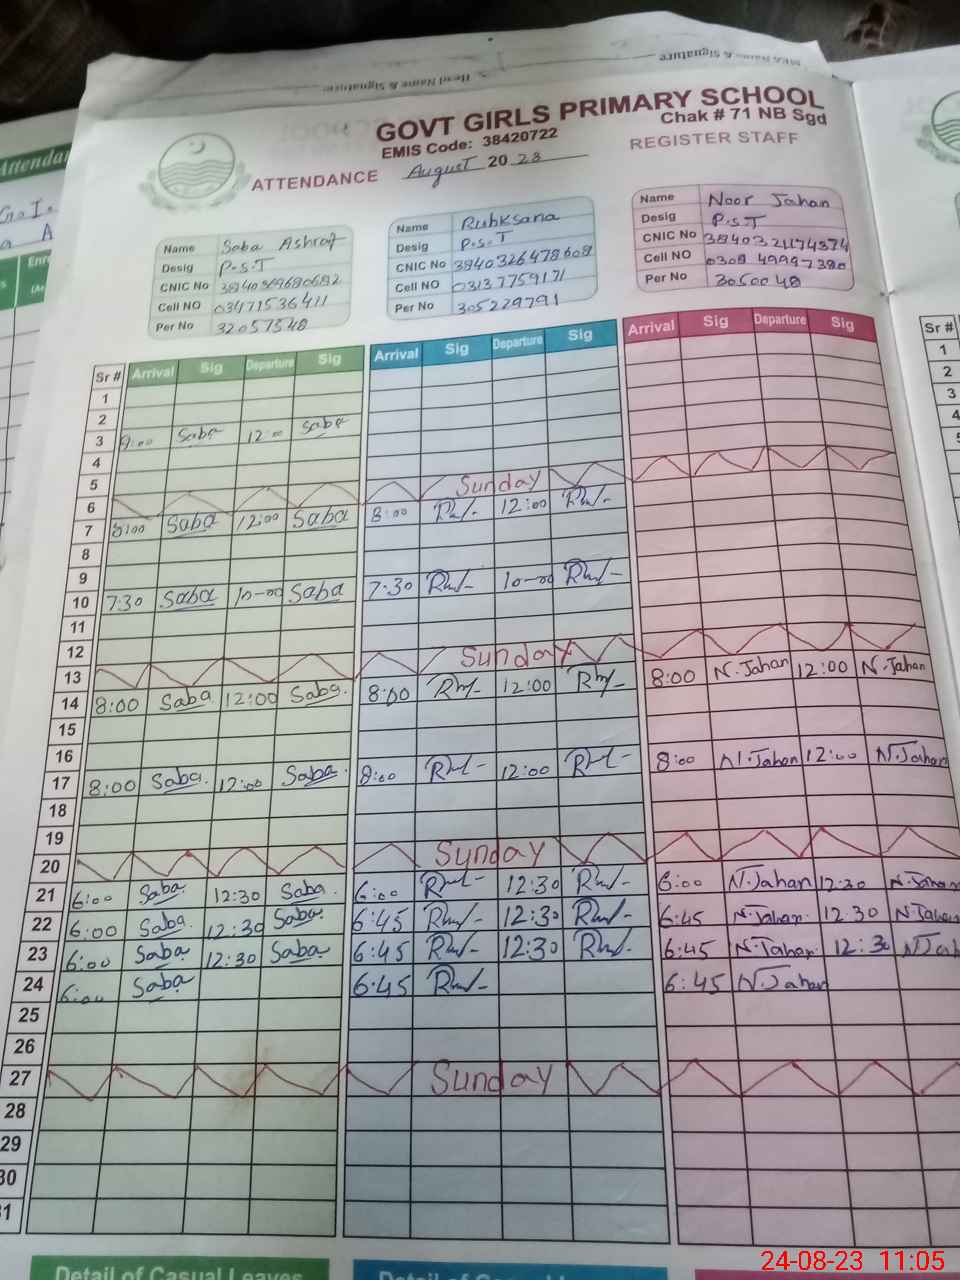 GOVT GIRLS PRIMARY SCHOOL
Chak # 71 NB Sgd
EMIS Code: 38420722
REGISTER STAFF
ATTENDANCE August 20 23
Name Saba Ashraf
Desig P.S.T
CNIC No
Cell NO 03471536411
Per No 32057548
Name Rubksana
Desig P.S.T
CNIC No 3840326478608
Cell NO 03137759171
Per No 305229791
Name Noor Jahan
Desig P.S.T
CNIC No
Cell NO
Per No 3050048
Sr # Arrival Sig Departure Sig Arrival Sig Departure Sig Arrival Sig Departure Sig
1
2
3 9:00 Saba 12:00 Saba
4
5 Sunday
6
7 8:00 Saba 12:00 Saba 8:00 12:00
8
9
10 7:30 Saba 10-00 Saba 7:30 10-00
11
12 Sunday
13
14 8:00 Saba 12:00 Saba 8:00 12:00 8:00 N.Jahan 12:00 N.Jahan
15
16
17 8:00 Saba 12:00 Saba 8:00 12:00 8:00 N.Jahan 12:00 N.Jahan
18
19
20 Sunday
21 6:00 Saba 12:30 Saba 6:00 12:30 6:00 N.Jahan 12:30 N.Jahan
22 6:00 Saba 12:30 Saba 6:45 12:30 6:45 N.Jahan 12:30 N.Jahan
23 6:00 Saba 12:30 Saba 6:45 12:30 6:45 N.Jahan 12:30 N.Jah
24 6:00 Saba 6:45 6:45 N.Jahan
25
26
27 Sunday
28
29
30
31
Detail of Casual Leaves
Sr #
1
2
3
4
24-08-23 11:05